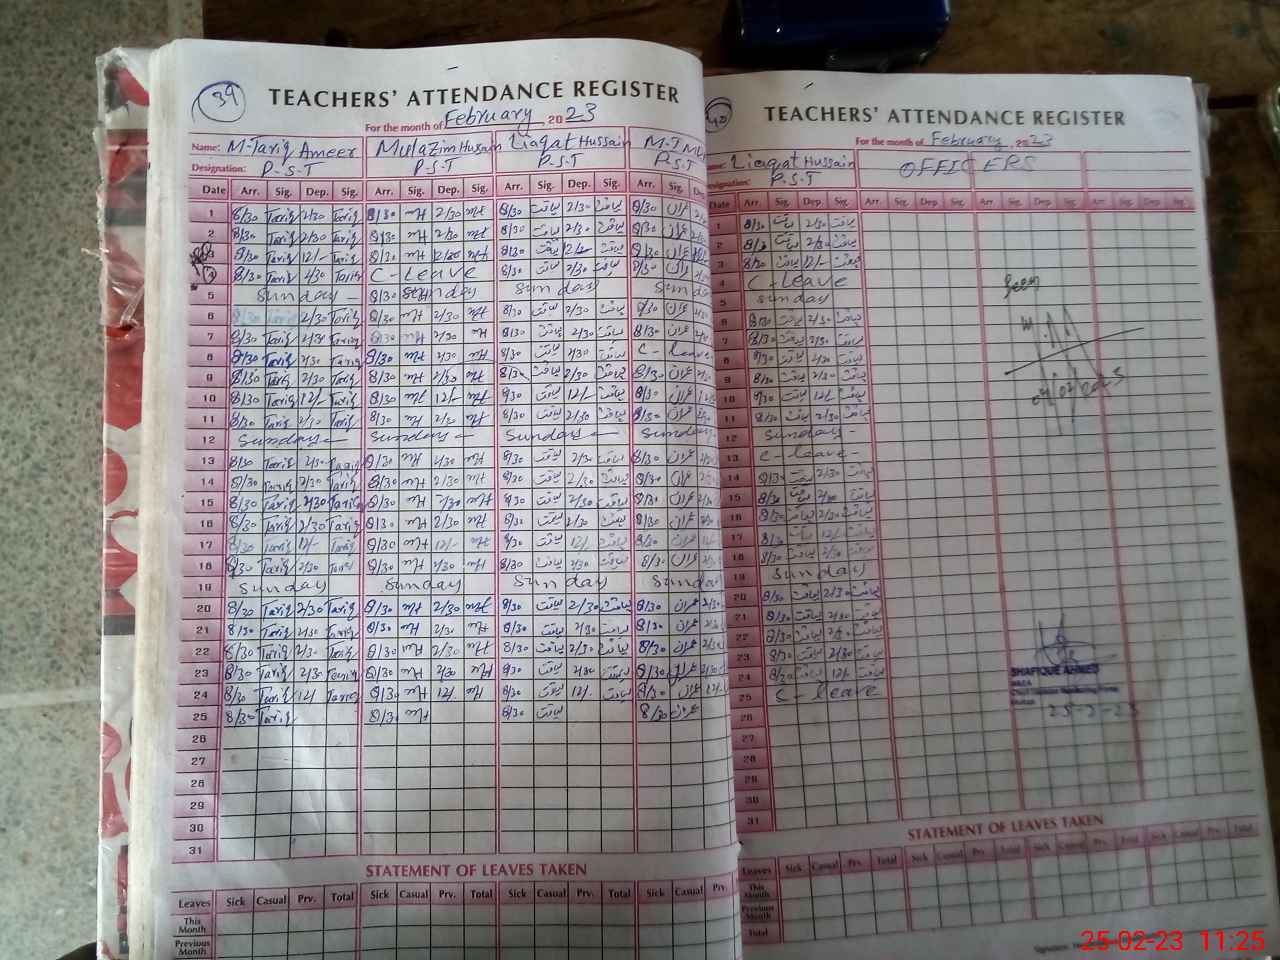 39
TEACHERS' ATTENDANCE REGISTER
For the month of February, 2023
Name: M-Tariq Ameer Mulazim Husain Liaqat Hussain
Designation: P-S-T P.S.T P.S.T P.S.T
Date Arr. Sig. Dep. Sig. Arr. Sig. Dep. Sig. Arr. Sig. Dep. Sig. Arr. Sig.
1 8/30 Tariq 2/30 Tariq 8/30 mH 2/30 mH 8/30 لیاقت 2/30 لیاقت 8/30 عمران
2 8/30 Tariq 2/30 Tariq 8/30 mH 2/30 mH 8/30 لیاقت 2/30 لیاقت 8/30 عمران
8/30 Tariq 12/- Tariq 8/30 mH mH 8/30 لیاقت 12/- لیاقت 8/30 عمران
8/30 Tariq 2/30 Tariq C-Leave 8/30 لیاقت 2/30 لیاقت 8/30 عمران
5 Sunday - Sunday Sunday
6 2/30 Tariq 8/30 mH 2/30 mH 8/30 لیاقت 2/30 لیاقت 8/30 عمران
7 8/30 Tariq 2/30 Tariq 8/30 mH 2/30 mH 8/30 لیاقت 2/30 لیاقت 8/30 عمران
8 8/30 Tariq 2/30 Tariq 8/30 mH 2/30 mH 8/30 لیاقت 2/30 لیاقت C-Leave
9 8/30 Tariq 2/30 Tariq 8/30 mH 2/30 mH 8/30 لیاقت 2/30 لیاقت 8/30 عمران
10 8/30 Tariq 12/- Tariq 8/30 mH 12/- mH 8/30 لیاقت 12/- لیاقت 8/30 عمران
11 8/30 Tariq 2/30 Tariq 8/30 mH 2/30 mH 8/30 لیاقت 2/30 لیاقت 8/30 عمران
12 Sunday- Sunday- Sunday- Sunday
13 8/30 Tariq 2/30 Tariq 8/30 mH 2/30 mH 8/30 لیاقت 2/30 لیاقت 8/30 عمران
14 8/30 Tariq 2/30 Tariq 8/30 mH 2/30 mH 8/30 لیاقت 2/30 لیاقت 8/30 عمران
15 8/30 Tariq 2/30 Tariq 8/30 mH 2/30 mH 8/30 لیاقت 2/30 لیاقت 8/30 عمران
16 8/30 Tariq 2/30 Tariq 8/30 mH 2/30 mH 8/30 لیاقت 2/30 لیاقت 8/30 عمران
17 8/30 Tariq 12/- Tariq 8/30 mH 12/- mH 8/30 لیاقت 12/- لیاقت 8/30 عمران
18 8/30 Tariq 2/30 Tariq 8/30 mH 2/30 mH 8/30 لیاقت 2/30 لیاقت 8/30 عمران
19 Sunday Sunday Sunday Sunday
20 8/30 Tariq 2/30 Tariq 8/30 mH 2/30 mH 8/30 لیاقت 2/30 لیاقت 8/30 عمران
21 8/30 Tariq 2/30 Tariq 8/30 mH 2/30 mH 8/30 لیاقت 2/30 لیاقت 8/30 عمران
22 8/30 Tariq 2/30 Tariq 8/30 mH 2/30 mH 8/30 لیاقت 2/30 لیاقت 8/30 عمران
23 8/30 Tariq 2/30 Tariq 8/30 mH 2/30 mH 8/30 لیاقت 2/30 لیاقت 8/30 عمران
24 8/30 Tariq 12/- Tariq 8/30 mH 12/- mH 8/30 لیاقت 12/- لیاقت 8/30 عمران
25 8/30 Tariq 8/30 mH 8/30 لیاقت 8/30 عمران
26
27
28
29
30
31
STATEMENT OF LEAVES TAKEN
Leaves Sick Casual Prv. Total Sick Casual Prv. Total Sick Casual Prv. Total Sick Casual Prv.
This Month
Previous Month
40
TEACHERS' ATTENDANCE REGISTER
For the month of February, 2023
Liaqat Hussain OFFICERS
P.S.T
Date Arr. Sig. Dep. Sig. Arr. Sig. Dep. Sig. Arr. Sig. Dep. Sig. Arr. Sig. Dep. Sig.
1 8/30 لیاقت 2/30 لیاقت
2 لیاقت 2/30 لیاقت
3 8/30 لیاقت 12/- لیاقت
4 C-Leave Seen
5 Sunday
6 8/30 لیاقت 2/30 لیاقت
7 8/30 لیاقت 2/30 لیاقت
8 8/30 لیاقت 2/30 لیاقت
9 8/30 لیاقت 2/30 لیاقت
10 8/30 لیاقت 12/- لیاقت
11 8/30 لیاقت 2/30 لیاقت
12 Sunday-
13 C-leave-
14 8/30 لیاقت 2/30 لیاقت
15 8/30 لیاقت 2/30 لیاقت
16 8/30 لیاقت 2/30 لیاقت
17 8/30 لیاقت 12/- لیاقت
18 8/30 لیاقت 2/30 لیاقت
19 Sunday
20 8/30 لیاقت 2/30 لیاقت
21 8/30 لیاقت 2/30 لیاقت
22 8/30 لیاقت لیاقت
23 8/30 لیاقت 2/30 لیاقت
24 8/30 لیاقت 12/- لیاقت
25 C-leave
SHAFIQUE AHMED
26 25-2-23
27
28
29
30
31
STATEMENT OF LEAVES TAKEN
Leaves Sick Casual Prv. Total Sick Casual Prv. Total Sick Casual Prv. Total Sick Casual Prv. Total
This Month
Previous Month
Total
25-02-23 11:25